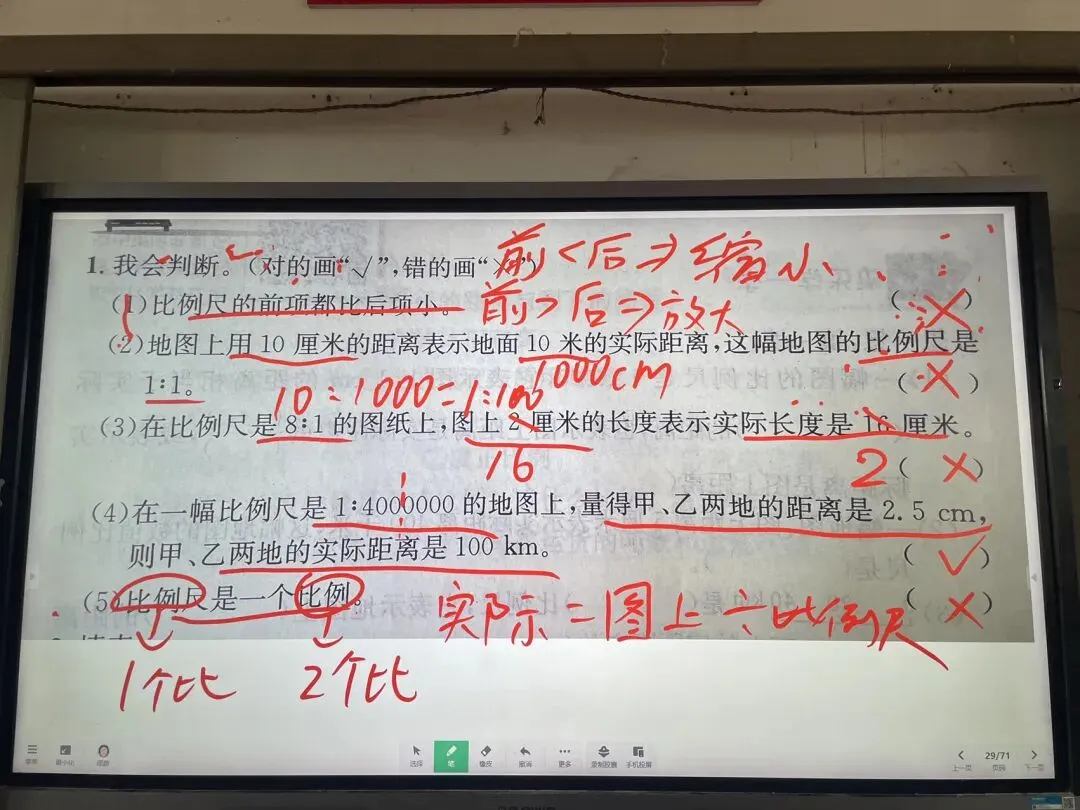 前<后⇒缩小
1. 我会判断。(对的画“√”,错的画“×”)
(1)比例尺的前项都比后项小。 (×)
前>后⇒放大
(2)地图上用 10 厘米的距离表示地面 10 米的实际距离,这幅地图的比例尺是
1000cm
1∶1。 (×)
10:1000=1:100
(3)在比例尺是 8∶1 的图纸上,图上 2 厘米的长度表示实际长度是 16 厘米。
16
2 (×)
(4)在一幅比例尺是 1∶4000000 的地图上,量得甲、乙两地的距离是 2.5 cm,
则甲、乙两地的实际距离是 100 km。 (√)
(5)比例尺是一个比例。 (×)
实际=图上÷比例尺
1个比 2个比
选择 笔 橡皮 撤消 更多 录制胶囊 手机投屏
上一页 29/71 页码 下一页